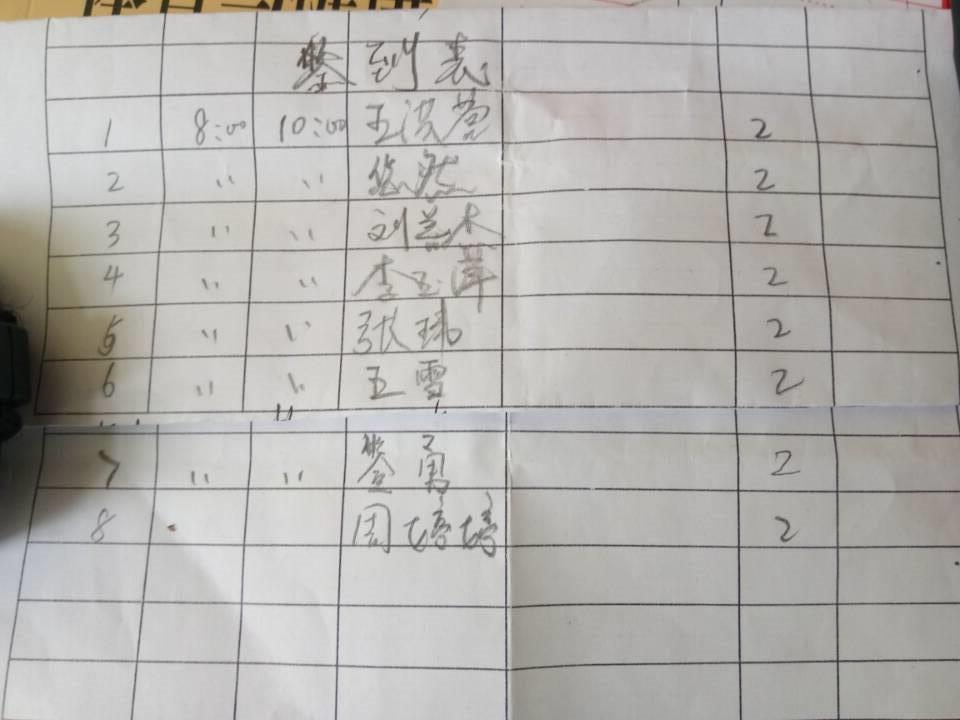 签到表
1 8:00 10:00 王洪营 2
2 〃 〃 悠然 2
3 〃 〃 刘兰木 2
4 〃 〃 李玉萍 2
5 〃 〃 张玮 2
6 〃 〃 王雪 2
7 〃 〃 勇 2
8 周婷婷 2